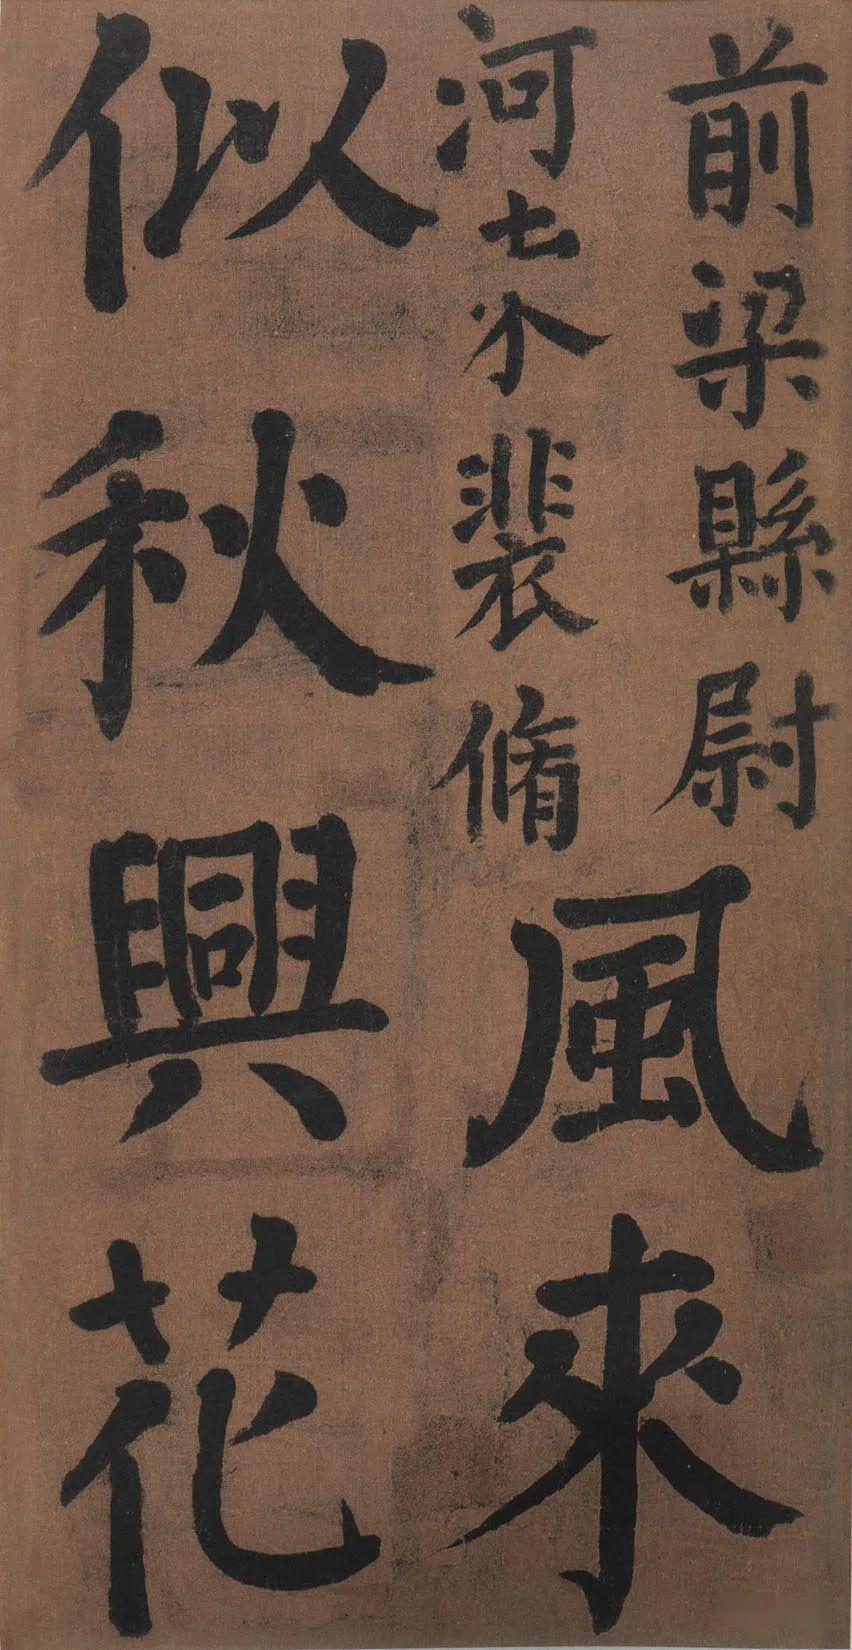 前梁縣尉
河东裴脩
風來
似秋興花